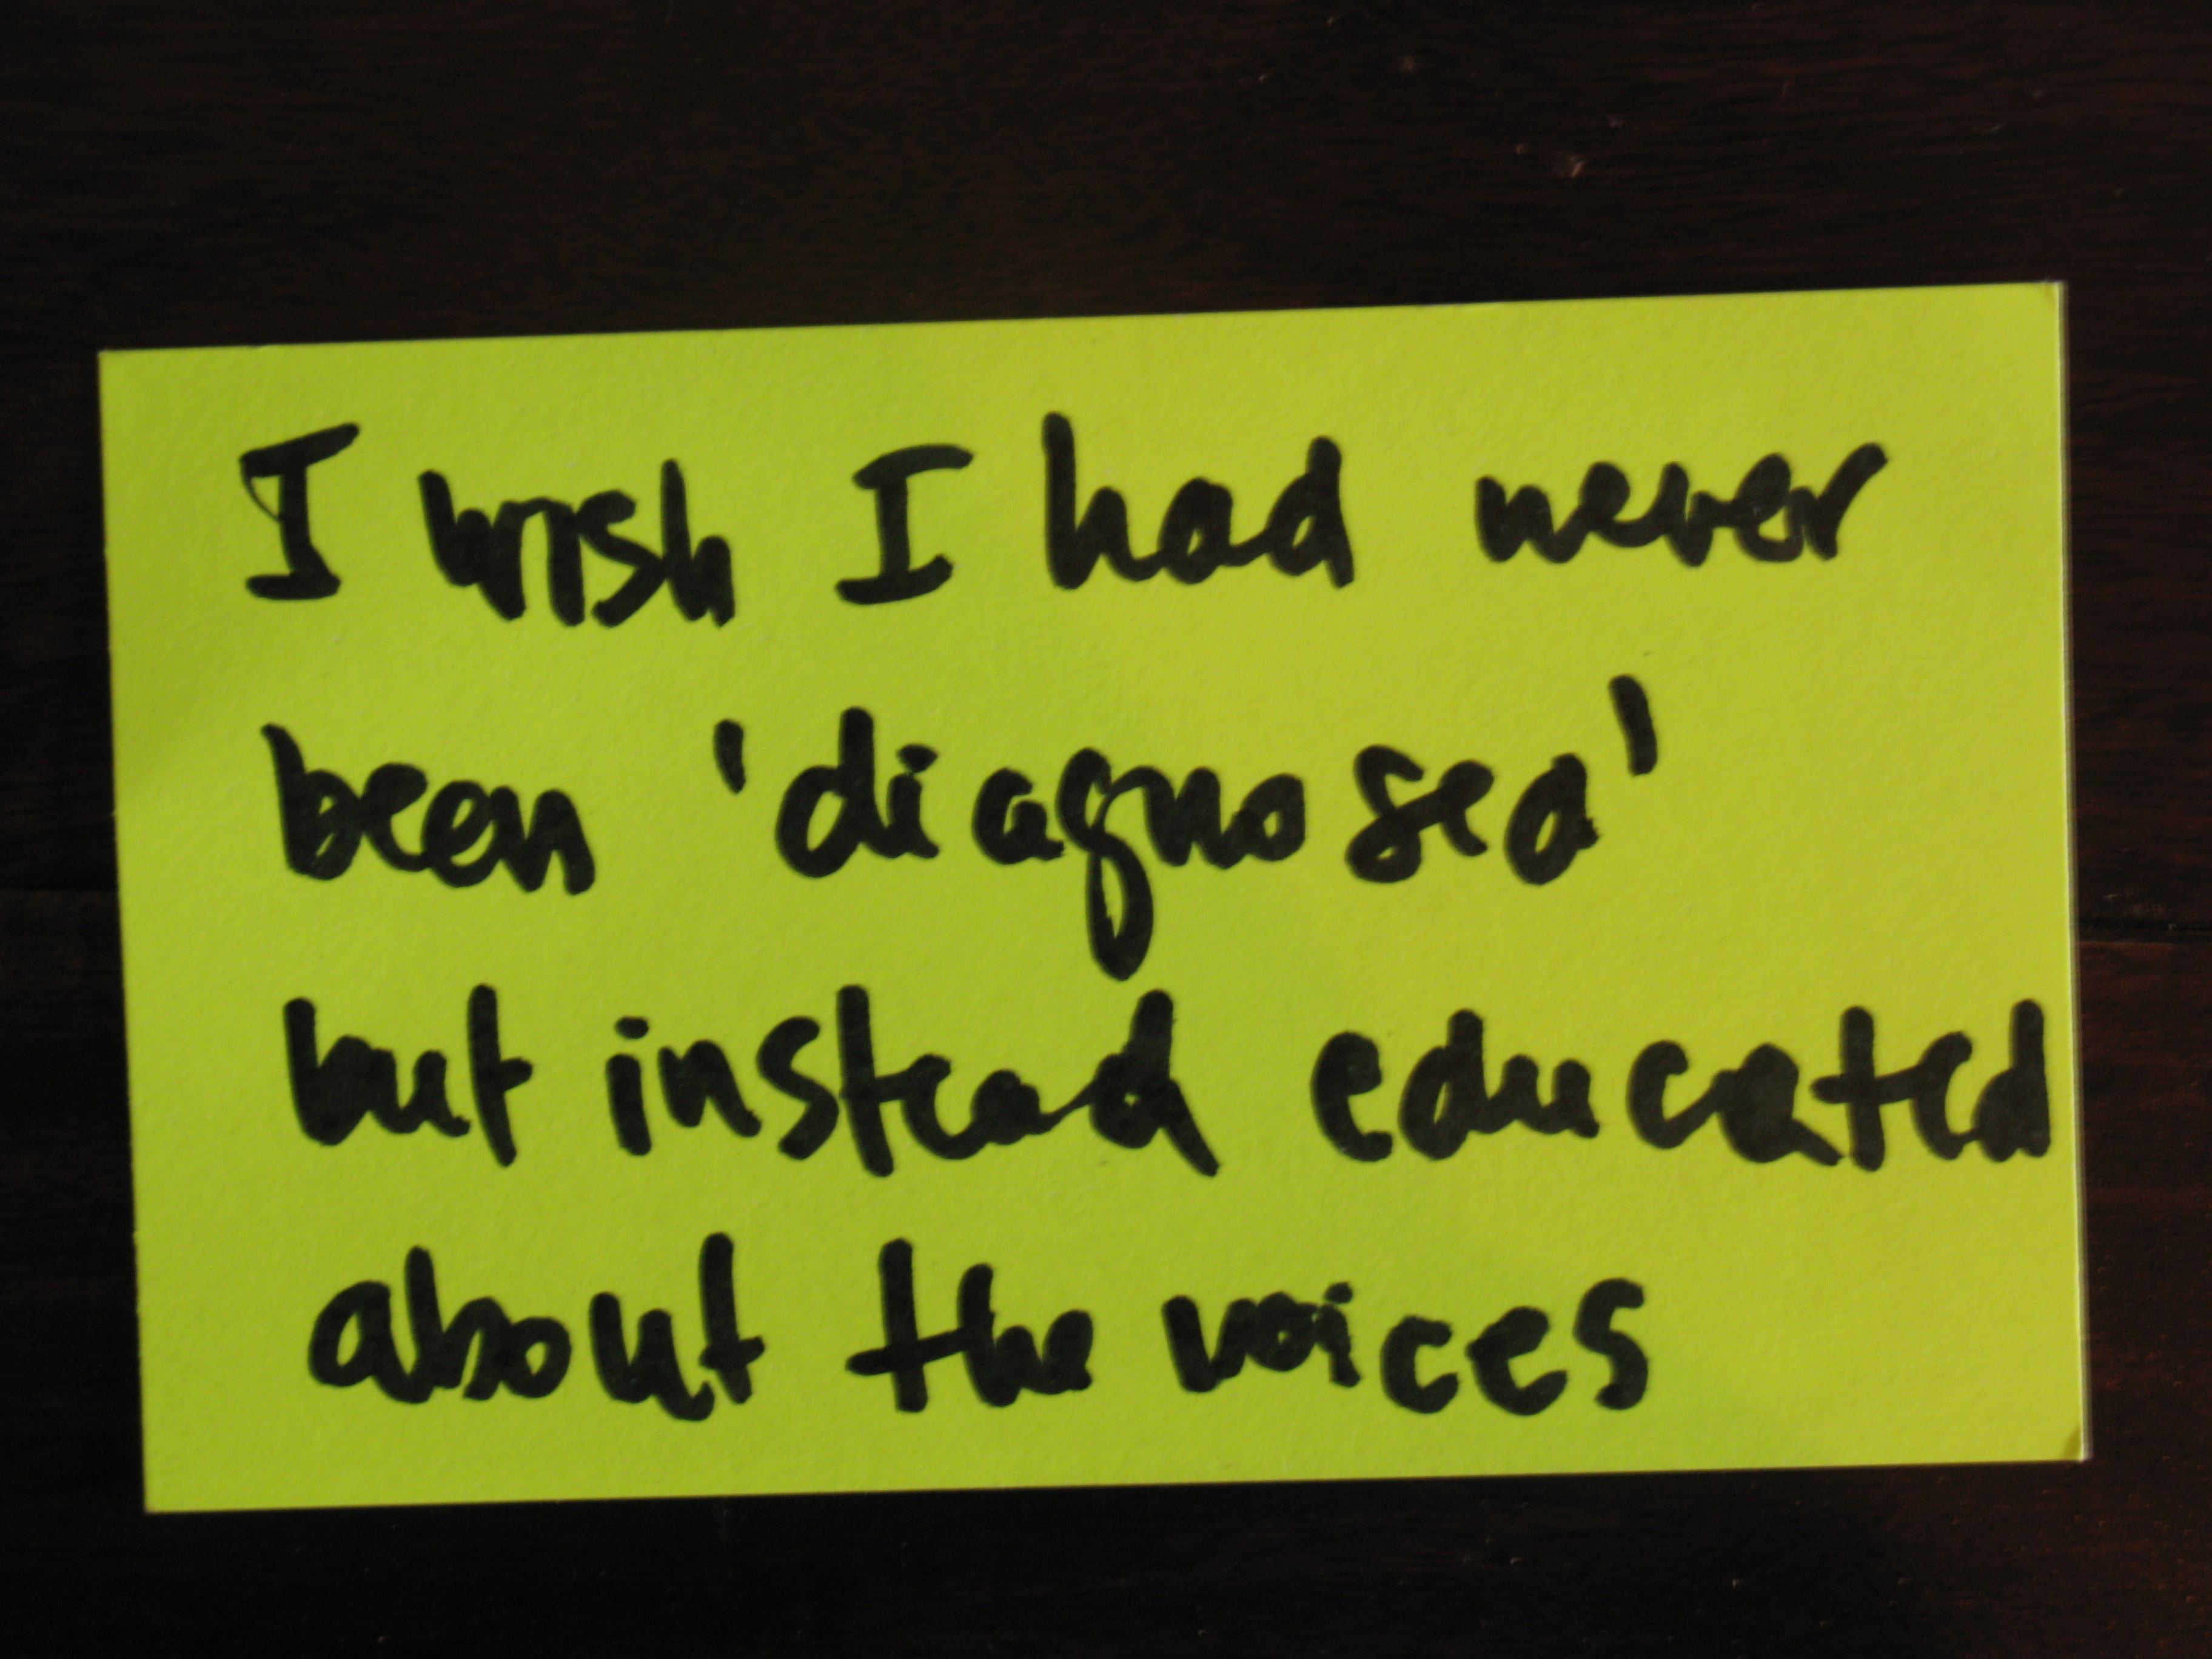 I wish I had never
been 'diagnosed'
but instead educated
about the voices